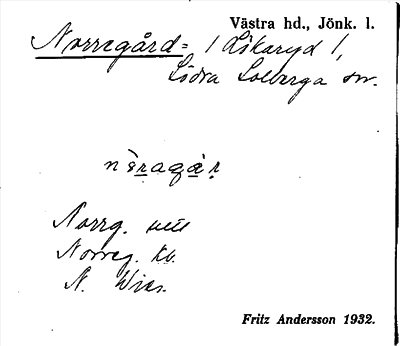 Västra hd., Jönk. l.
Norregård = / Likaryd /,
Södra Solberga sn.
Norrg.
Norreg. kb.
N.
Fritz Andersson 1932.